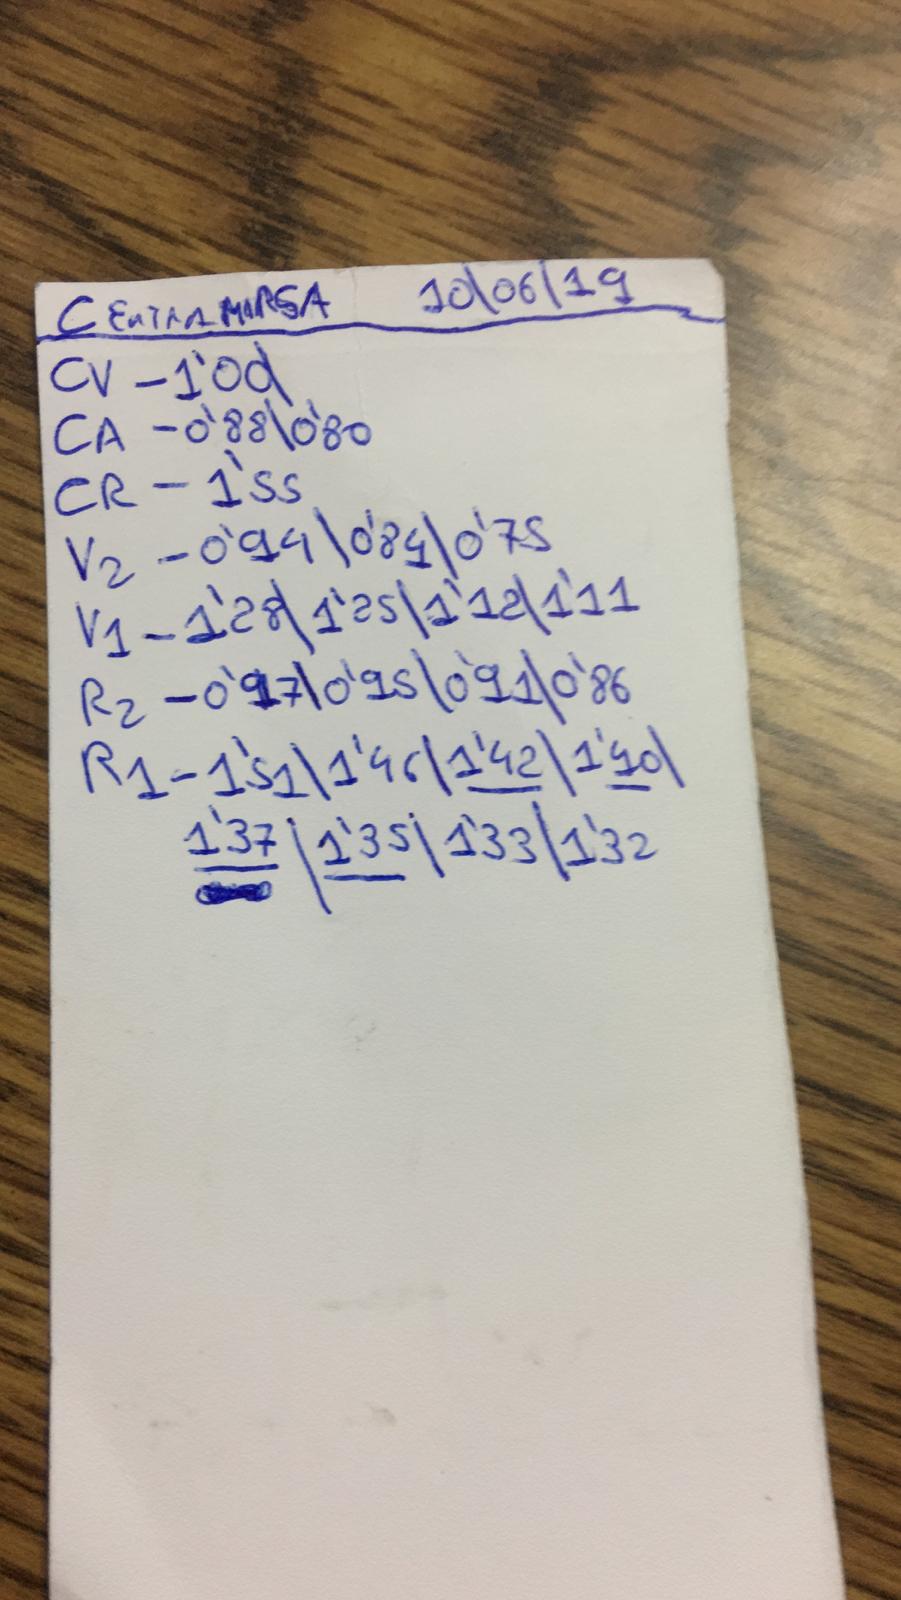 CENTRAMIRSA 10/06/19
CV - 1'00\
CA - 0'88\0'80
CR - 1'55
V2 - 0'94\0'84\0'75
V1 - 1'28\1'25\1'12\1'11
R2 - 0'97\0'95\0'91\0'86
R1 - 1'51\1'46\1'42\1'40\
1'37\1'35\1'33\1'32